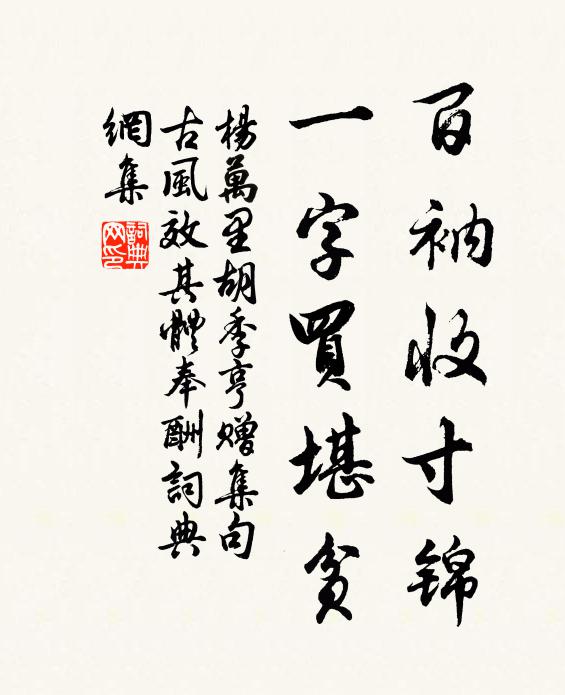 百衲收寸锦
一字買堪貧
楊萬里胡季亨贈集句
古風效其體奉酬詞典
網集
詞典
网印